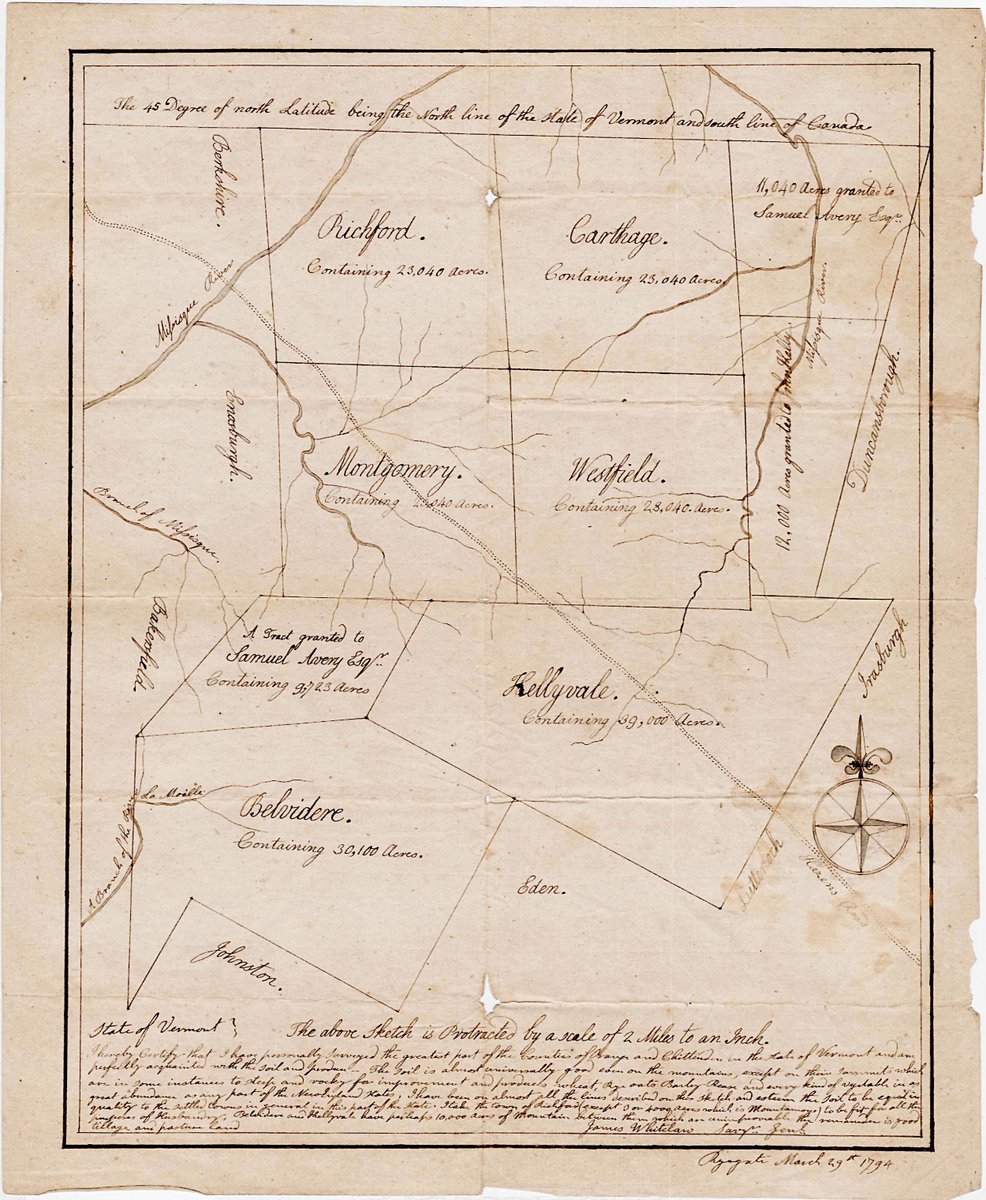 The 45 Degree of north Latitude being the North line of the State of Vermont and south line of Canada
Berkshire.
Richford.
Containing 23,040 Acres.
Carthage.
Containing 23,040 Acres
11,040 Acres granted to
Samuel Avery Esqr.
Missisque River
Missisque River.
Enosburgh.
Montgomery.
Containing 23,040 Acres.
Westfield.
Containing 23,040. Acres.
12,000 Acres granted to John Kelly
Duncansborough.
Branch of Missisque.
Bakersfield.
A Tract granted to
Samuel Avery Esqr.
Containing 9,723 Acres
Kellyvale.
Containing 39,000 Acres.
Irasburgh
A Branch of the River
La Moille
Belvidere.
Containing 30,100 Acres.
Eden.
Hazens Road
Johnston.
State of Vermont}
The above Sketch is Protracted by a scale of 2 Miles to an Inch.
I hereby Certify that I have personally surveyed the greatest part of the Counties of Orange and Chittenden in the State of Vermont and am
perfectly acquainted with the soil and produce — The Soil is almost universally good even on the mountains, except on their summits which
are in some instances to steep and rocky for improvement and produces wheat, Rye oats Barley Pease and every kind of vegetable in as
great abundance as any part of the New England States, I have been on almost all the lines described on this sketch and esteem the Soil to be equal in
quality to the settled towns in general in this part of the State. I take the town of Richford (except 3 or 4000 acres which is Mountainous) to be fit for all the
purposes of Belvidere and Kellyvale have perhaps 10,000 acres of Mountain between them which are unimprovable the remainder is good
tillage and pasture land
James Whitelaw Survr. Genl.
Ryegate March 29th 1794